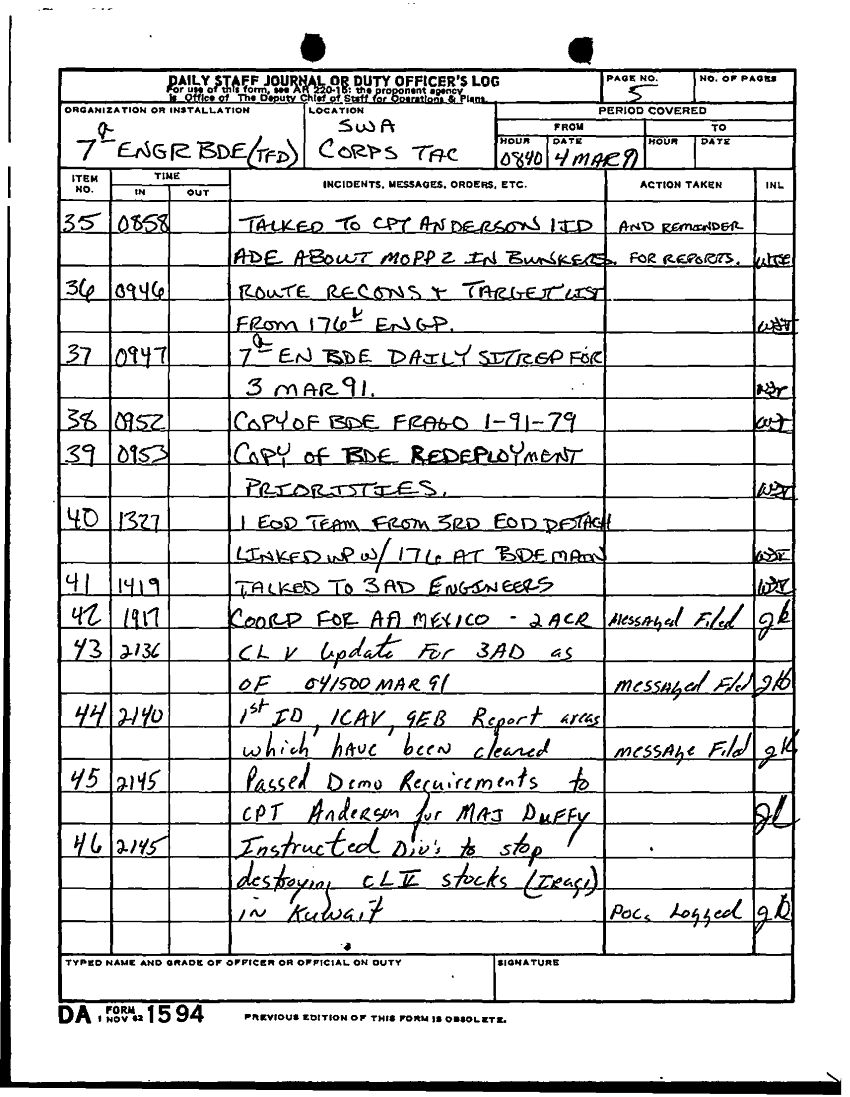 DAILY STAFF JOURNAL OR DUTY OFFICER'S LOG
For use of this form, see AR 220-15; the proponent agency
is Office of The Deputy Chief of Staff for Operations & Plans.
PAGE NO.
5
NO. OF PAGES
ORGANIZATION OR INSTALLATION
7th ENGR BDE (TFD)
LOCATION
SWA
CORPS TAC
PERIOD COVERED
FROM TO
HOUR DATE HOUR DATE
0840 4 MAR 91
ITEM NO. TIME IN OUT INCIDENTS, MESSAGES, ORDERS, ETC. ACTION TAKEN INL
35 0858 TALKED TO CPT ANDERSON 1ID AND REMINDER
ADE ABOUT MOPP 2 IN BUNKERS. FOR REPORTS.
36 0946 ROUTE RECONS & TARGET LIST
FROM 176th ENGP.
37 0947 7th EN BDE DAILY SITREP FOR
3 MAR 91.
38 0952 COPY OF BDE FRAGO 1-91-79
39 0953 COPY OF BDE REDEPLOYMENT
PRIORISTIES.
40 1327 1 EOD TEAM FROM 3RD EOD DETACH
LINKED UP W/ 176 AT BDE MAIN
41 1419 TALKED TO 3AD ENGINEERS
42 1917 COORD FOR AA MEXICO - 2 ACR Messaged Filed gk
43 2136 CL V Update For 3AD as
OF 041500 MAR 91 messaged Filed
44 2140 1st ID, 1CAV, 9EB Report areas
which have been cleared message Filed gk
45 2145 Passed Demo Requirements to
CPT Anderson for MAJ Duffy
46 2145 Instructed Div's to stop
destroying CL V stocks (Iraqi)
in Kuwait POC, Logged
TYPED NAME AND GRADE OF OFFICER OR OFFICIAL ON DUTY
SIGNATURE
DA FORM 1 NOV 62 1594 PREVIOUS EDITION OF THIS FORM IS OBSOLETE.